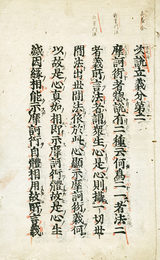 次說立義分第二
摩訶衍者總說有二種云何為二一者法二
者義所言法者謂衆生心是心則攝一切世
間法出世間法依於此心顯示摩訶衍義何
以故是心真如相即示摩訶衍體故是心生
滅因緣相能示摩訶衍自體相用故所言義